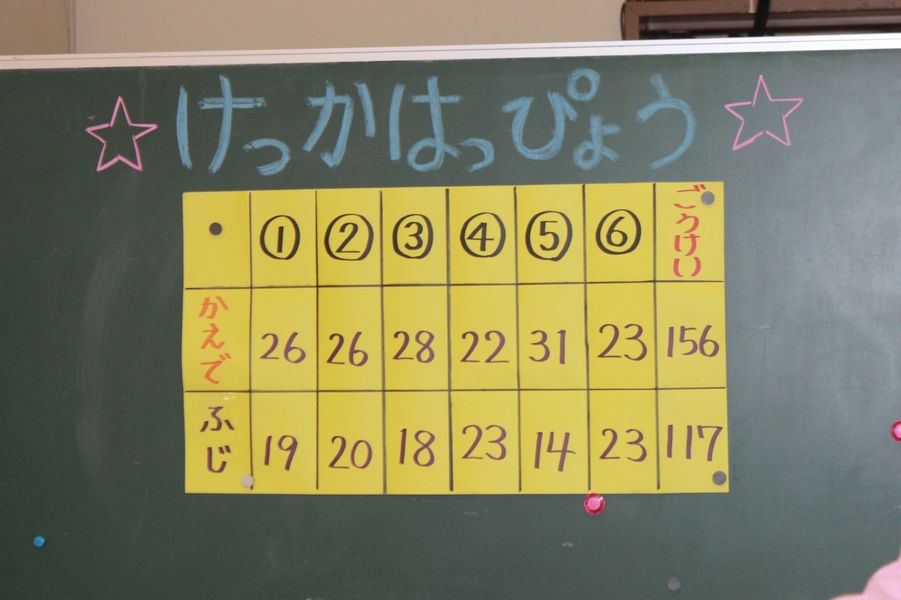 けっかはっぴょう
① ② ③ ④ ⑤ ⑥ ごうけい
かえで 26 26 28 22 31 23 156
ふじ 19 20 18 23 14 23 117